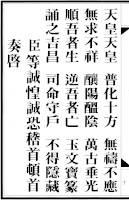 天皇天皇　普化十方　無禱不應
無求不祥　釀陽醞陰　萬古垂光
順吾者生　逆吾者亡　玉文寶篆
誦之吉昌　司命守戶　不得隱藏
臣等誠惶誠恐稽首頓首
奏啓